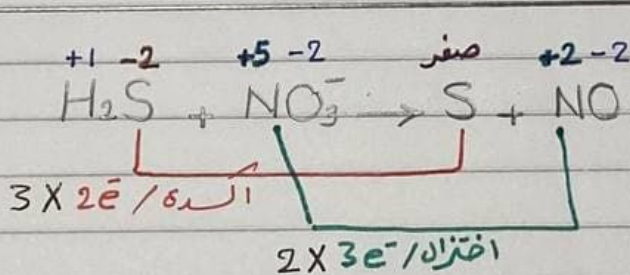 +1 -2 +5 -2 صفر +2 -2
H₂S + NO₃⁻ → S + NO
3 X 2e⁻ / أكسدة
2 X 3e⁻ / اختزال